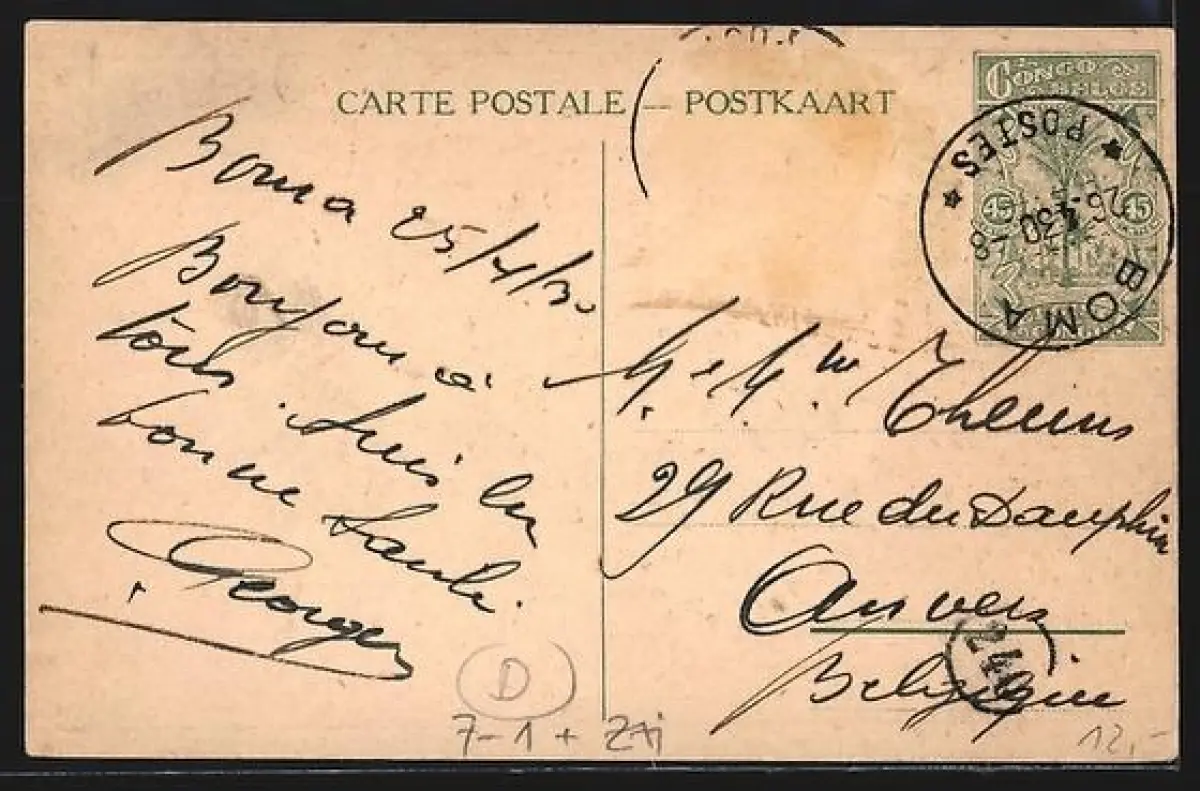 CARTE POSTALE — POSTKAART
CONGO
BELGE
45 45
★ POSTES ★
26-4 30 -8
BOMA
Boma 25/4/30
Bonjour à
tous. Suis en
bonne santé.
Georges
M. & Mme Theunis
29 Rue du Dauphin
Anvers
Belgique
24
D
7-1 + ZAi
12.-